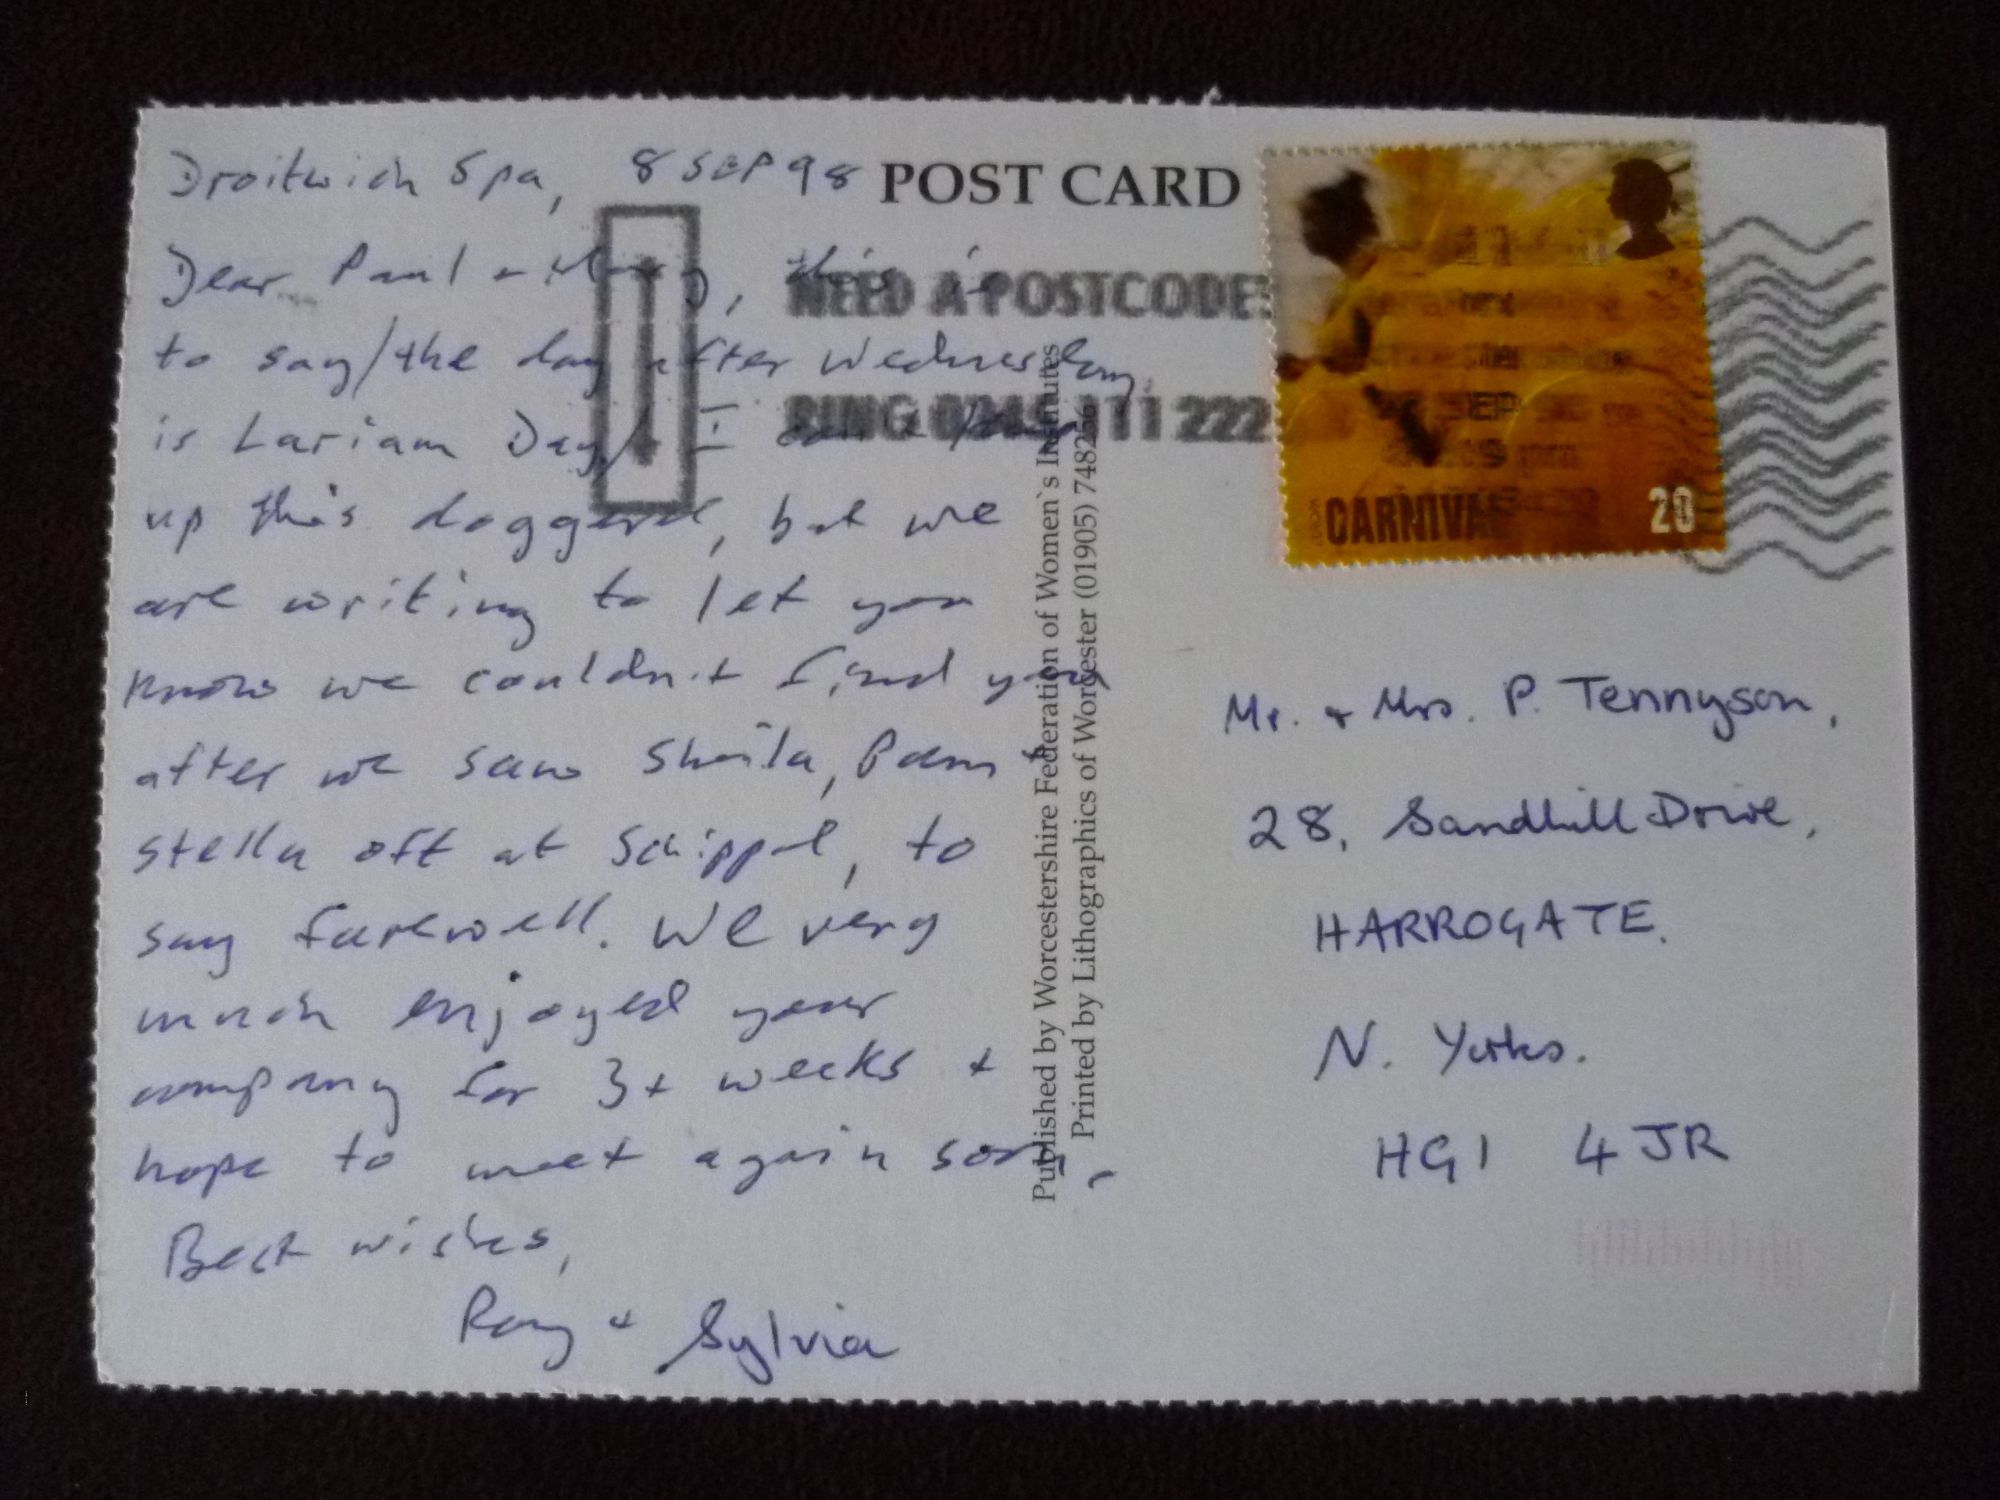 Droitwich Spa, 8 SEP 98
Dear Paul + Mary, this is
to say/the day after Wednesday
is Lariam Day/. I can't keep
up this doggerel, but we
are writing to let you
know we couldn't find you
after we saw Sheila, Pam +
Stella off at Schippol, to
say farewell. We very
much enjoyed your
company for 3+ weeks +
hope to meet again soon.
Best wishes,
Ray + Sylvia
POST CARD
NEED A POSTCODE
RING 0345 111 222
Published by Worcestershire Federation of Women`s Institutes
Printed by Lithographics of Worcester (01905) 748266
CARNIVAL
20
SEP
Mr. + Mrs. P. Tennyson,
28, Sandhill Drive,
HARROGATE.
N. Yorks.
HG1 4JR